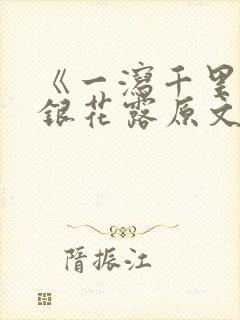 《一泻千里金
银花露原文
隋振江